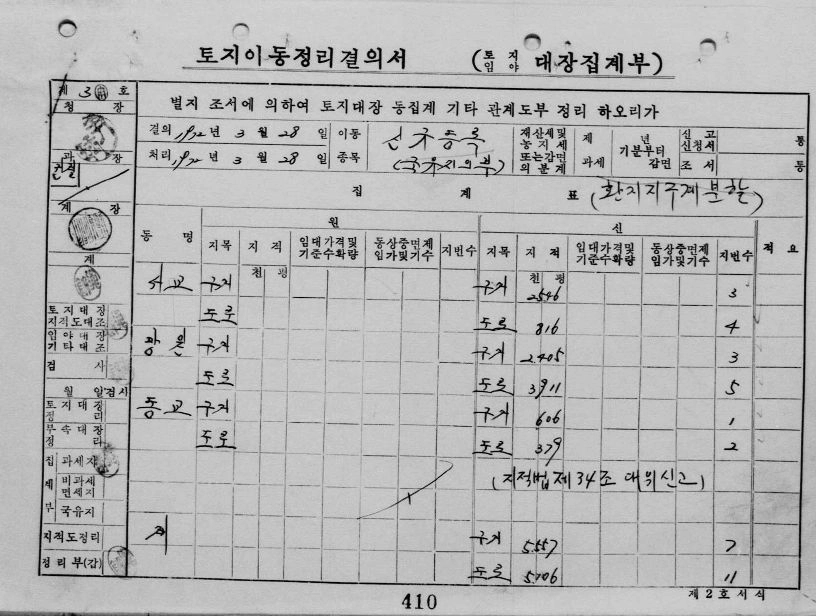 토지이동정리결의서 (토지 임야 대장집계부)
제 3 호
별지 조서에 의하여 토지대장 동집계 기타 관계도부 정리 하오리가
청 장
결의 1972 년 3 월 28 일 이동 신규등록 재산세및 농지세 또는감면의 분계 제 년 기분부터 신고 신청서 통
처리 1972 년 3 월 28 일 종목 (국유지의부) 과세 감면 조서 통
과 장
건설
집 계 표 (환지지구계분할)
계 장
동 명 원 신 적 요
지목 지적 임대가격및 기준수확량 동상중면제 임가및기수 지번수 지목 지적 임대가격및 기준수확량 동상중면제 임가및기수 지번수
계
천 평 천 평
서교 구거 구거 2546 3
도로 도로 816 4
토지대장 지적도대조
임야대장 기타대조
광원 구거 구거 2405 3
검 사
도로 도로 3911 5
월 일검시
토지대장 정리
동교 구거 구거 606 1
부속대장 정리
도로 도로 379 2
집계부
과세지
(지적법제34조 대위신고)
비과세 면세지
국유지
지적도정리
계 구거 5557 7
정리부(갑)
도로 5106 11
제2호서식
410